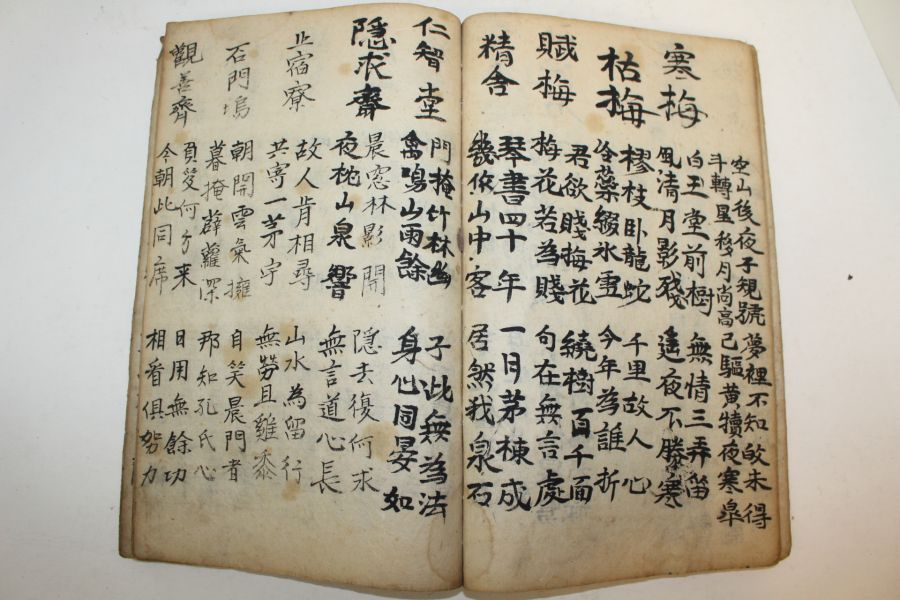 空山後夜子規號
斗轉星移月尚高
夢裡不知未得
己驅黃犢夜寒皐
寒梅
白玉堂前樹
風清月影殘
無情三弄笛
遙夜不勝寒
枯梅
樛枝卧龍蛇
冷藥綴氷雪
千里故人心
今年為誰折
賦梅
君欲賤梅花
梅花若為賤
繞樹百千面
句在無言處
精舍
琴書四十年
幾作山中客
一日茅棟成
居然我泉石
仁智堂
門掩竹林幽
禽鳴山雨餘
子此無為法
身心同晏如
隱求齋
晨窓林影開
夜枕山泉響
隱去復何求
無言道心長
止宿寮
故人肯相尋
共寄一茅宇
山水為留行
無勞且雞黍
石門塢
朝開雲氣擁
暮掩薜蘿深
自笑晨門者
那知孔氏心
觀善齊
負笈何方来
今朝此同席
日用無餘功
相看俱努力